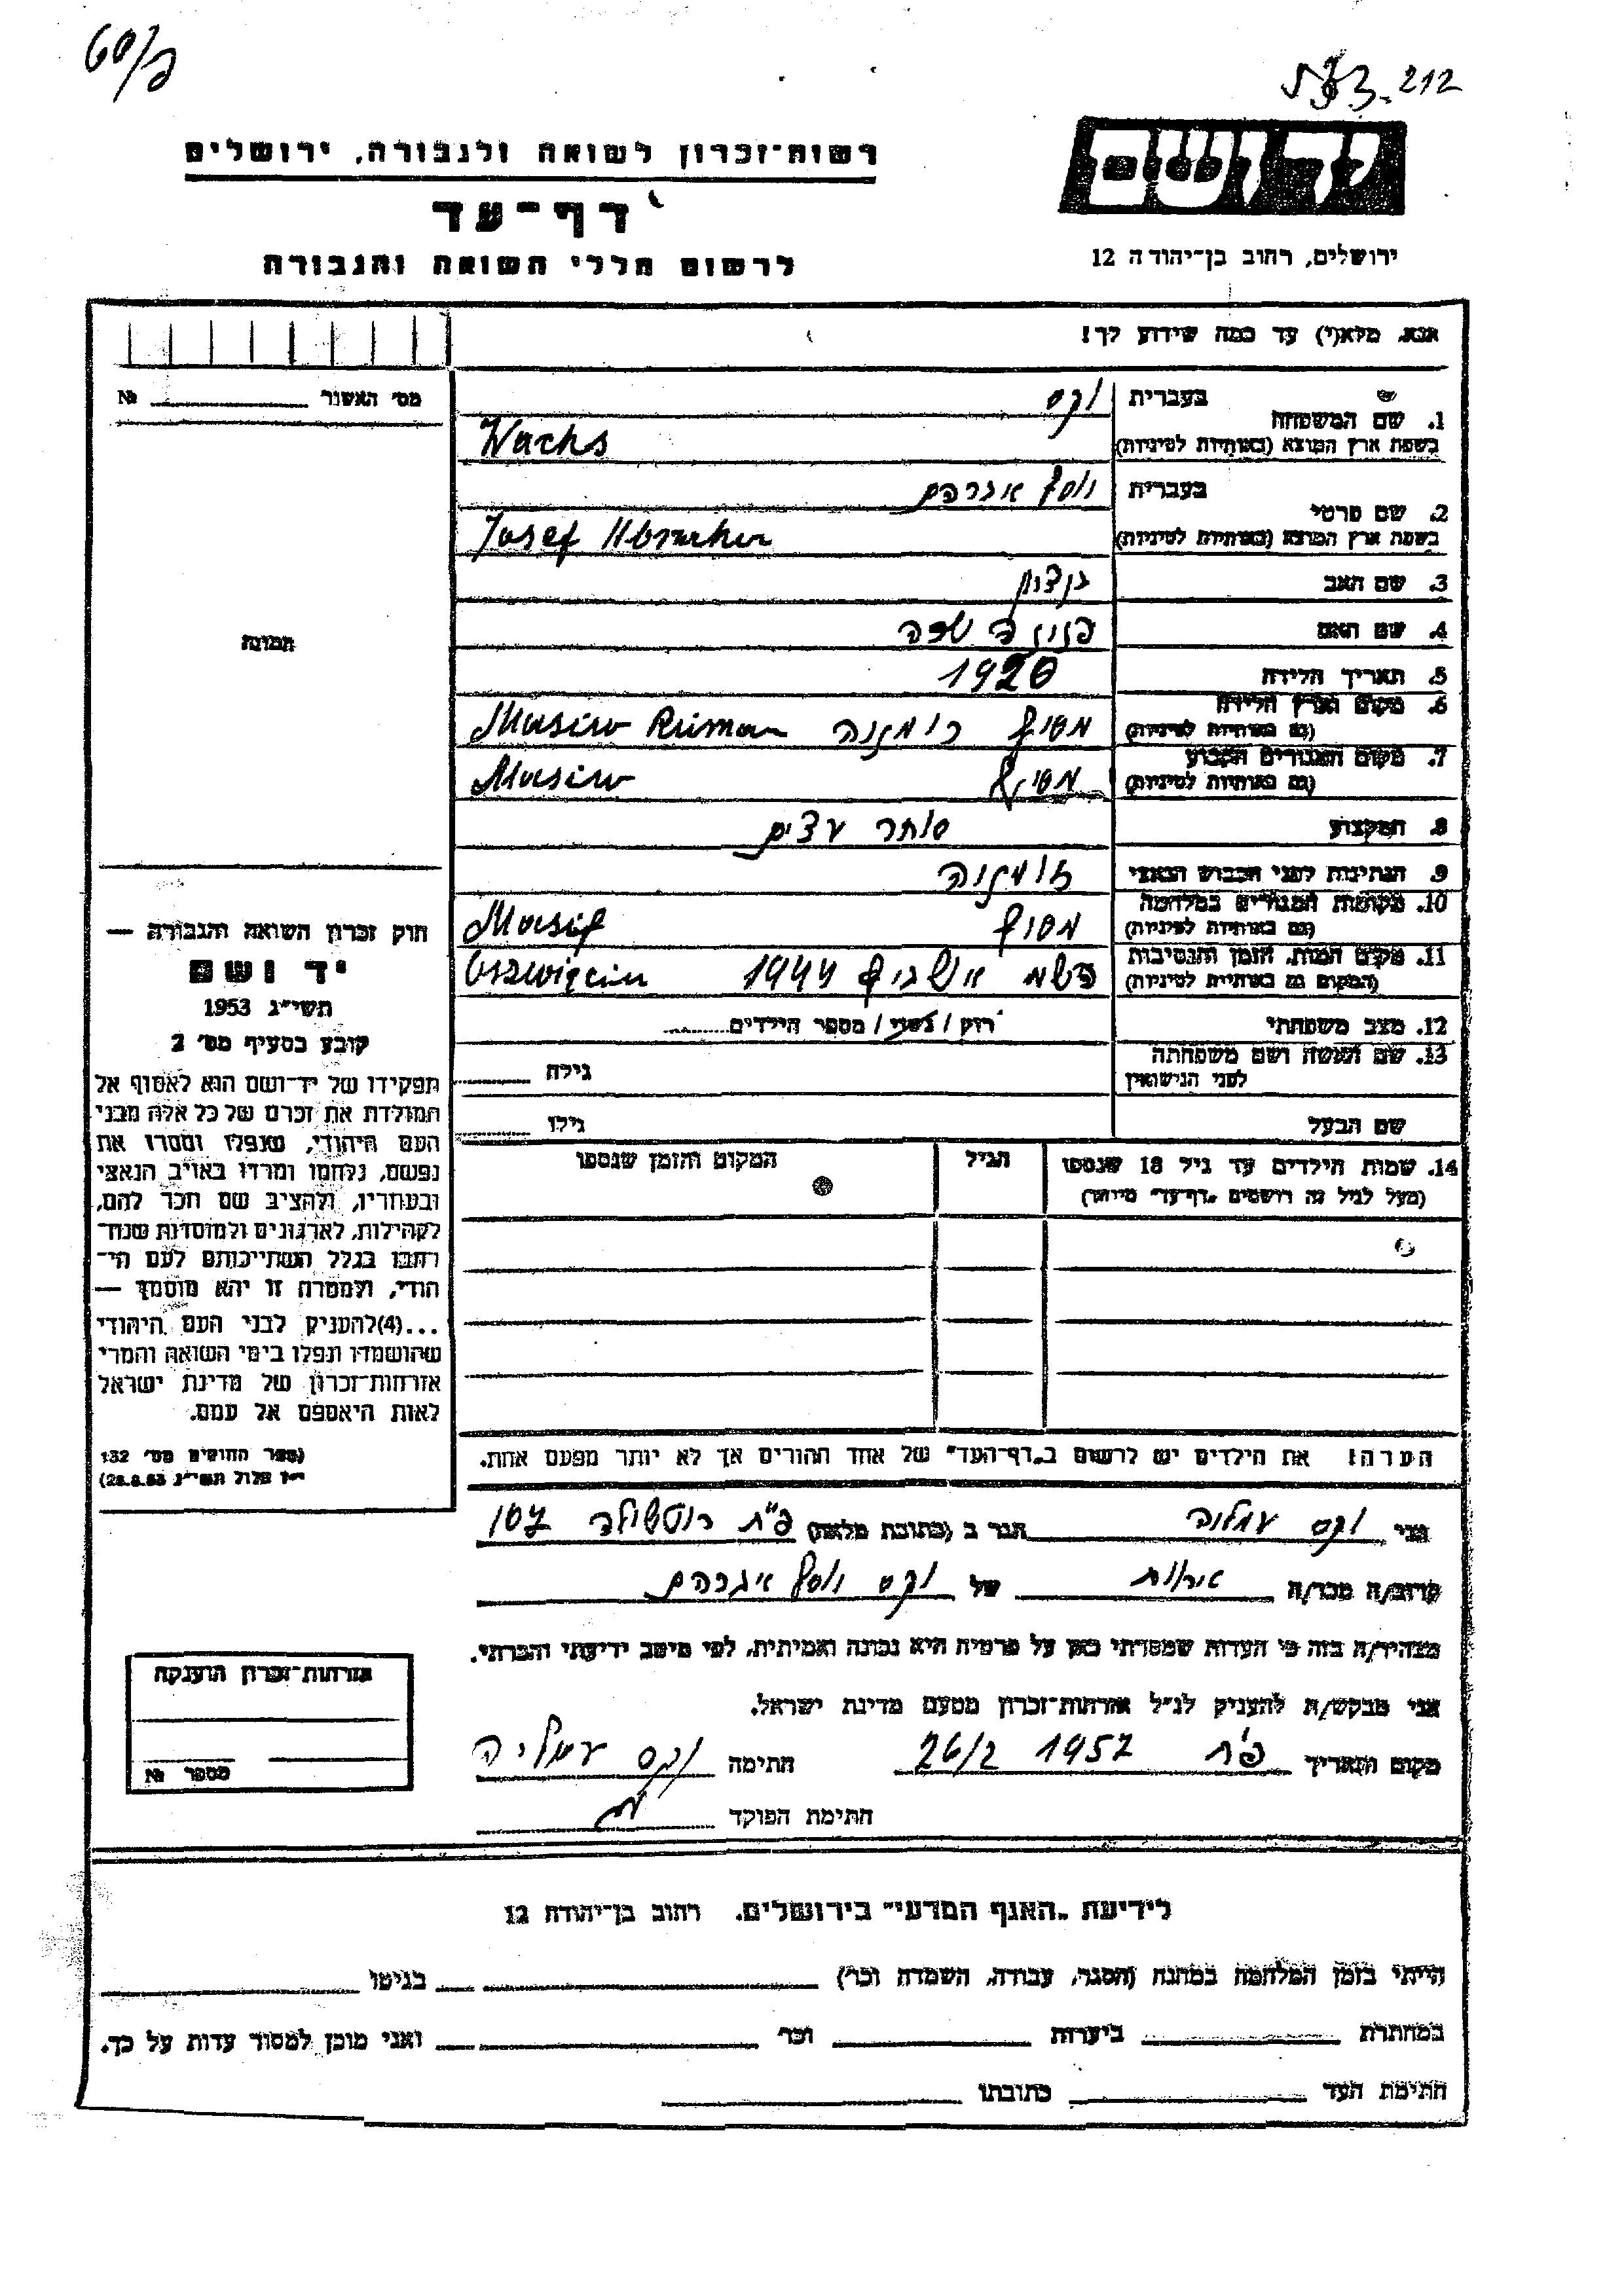 212
רשות־זכרון לשואה ולגבורה, ירושלים
יד ושם
דף־עד
ירושלים, רחוב בן־יהודה 12
לרשום חללי השואה והגבורה
אנא, מלא(י) עד כמה שידוע לך!
מס׳ האשור № 
1. שם המשפחה
בעברית וקס
בשפת ארץ המוצא (באותיות לטיניות) Wachs
2. שם פרטי
בעברית יוסף אברהם
בשפת ארץ המוצא (באותיות לטיניות) Josef
3. שם האב בן ציון
4. שם האם
5. תאריך הלידה 1920
6. מקום וארץ הלידה
(גם באותיות לטיניות) רומניה Masiw Ruman
7. מקום המגורים הקבוע
(גם באותיות לטיניות) Masiw
8. המקצוע סוחר עצים
9. הנתינות לפני הכבוש הנאצי רומניה
10. מקומות המגורים במלחמה
(גם באותיות לטיניות) Masif
11. מקום המות, הזמן והנסיבות
(המקום גם באותיות לטיניות) 1944 Oszwięcim
12. מצב משפחתי רוק / נשוי / מספר הילדים
13. שם האשה ושם משפחתה
לפני הנישואין גילה
שם הבעל גילו
14. שמות הילדים עד גיל 18 שנספו
(מעל לגיל זה רושמים „דף־עד” מיוחד)
הגיל
המקום והזמן שנספו
הערה: את הילדים יש לרשום ב„דף־העד” של אחד ההורים אך לא יותר מפעם אחת.
תמונה
חוק זכרון השואה והגבורה —
יד ושם
תשי״ג 1953
קובע בסעיף מס׳ 2
תפקידו של יד־ושם הוא לאסוף אל
המולדת את זכרם של כל אלה מבני
העם היהודי, שנפלו ומסרו את
נפשם, נלחמו ומרדו באויב הנאצי
ובעוזריו, ולהציב שם וזכר להם,
לקהילות, לארגונים ולמוסדות שנח־
רבו בגלל השתייכותם לעם הי־
הודי, ולמטרה זו יהא מוסמך —
...(4) להעניק לבני העם היהודי
שהושמדו ונפלו בימי השואה והמרי
אזרחות־זכרון של מדינת ישראל
לאות היאספם אל עמם.
(ספר החוקים מס׳ 132
י״ז אלול תשי״ג 28.8.53)
אני וקס הגר ב (כתובת מלאה) פ״ת רוטשילד 107
קרוב/ה מכר/ה של וקס יוסף אברהם
מצהיר/ה בזה כי העדות שמסרתי כאן על פרטיה היא נכונה ואמיתית, לפי מיטב ידיעתי והכרתי.
אני מבקש/ת להעניק לנ״ל אזרחות־זכרון מטעם מדינת ישראל.
מקום ותאריך פ״ת 1957 26/2 חתימה וקס עמליה
חתימת הפוקד
אזרחות־זכרון הוענקה
מספר №
לידיעת „האגף המדעי” בירושלים. רחוב בן־יהודה 12
הייתי בזמן המלחמה במחנה (הסגר, עבודה, השמדה וכו׳) בגיטו
במחתרת ביערות וכו׳ ואני מוכן למסור עדות על כך.
חתימת העד כתובתו